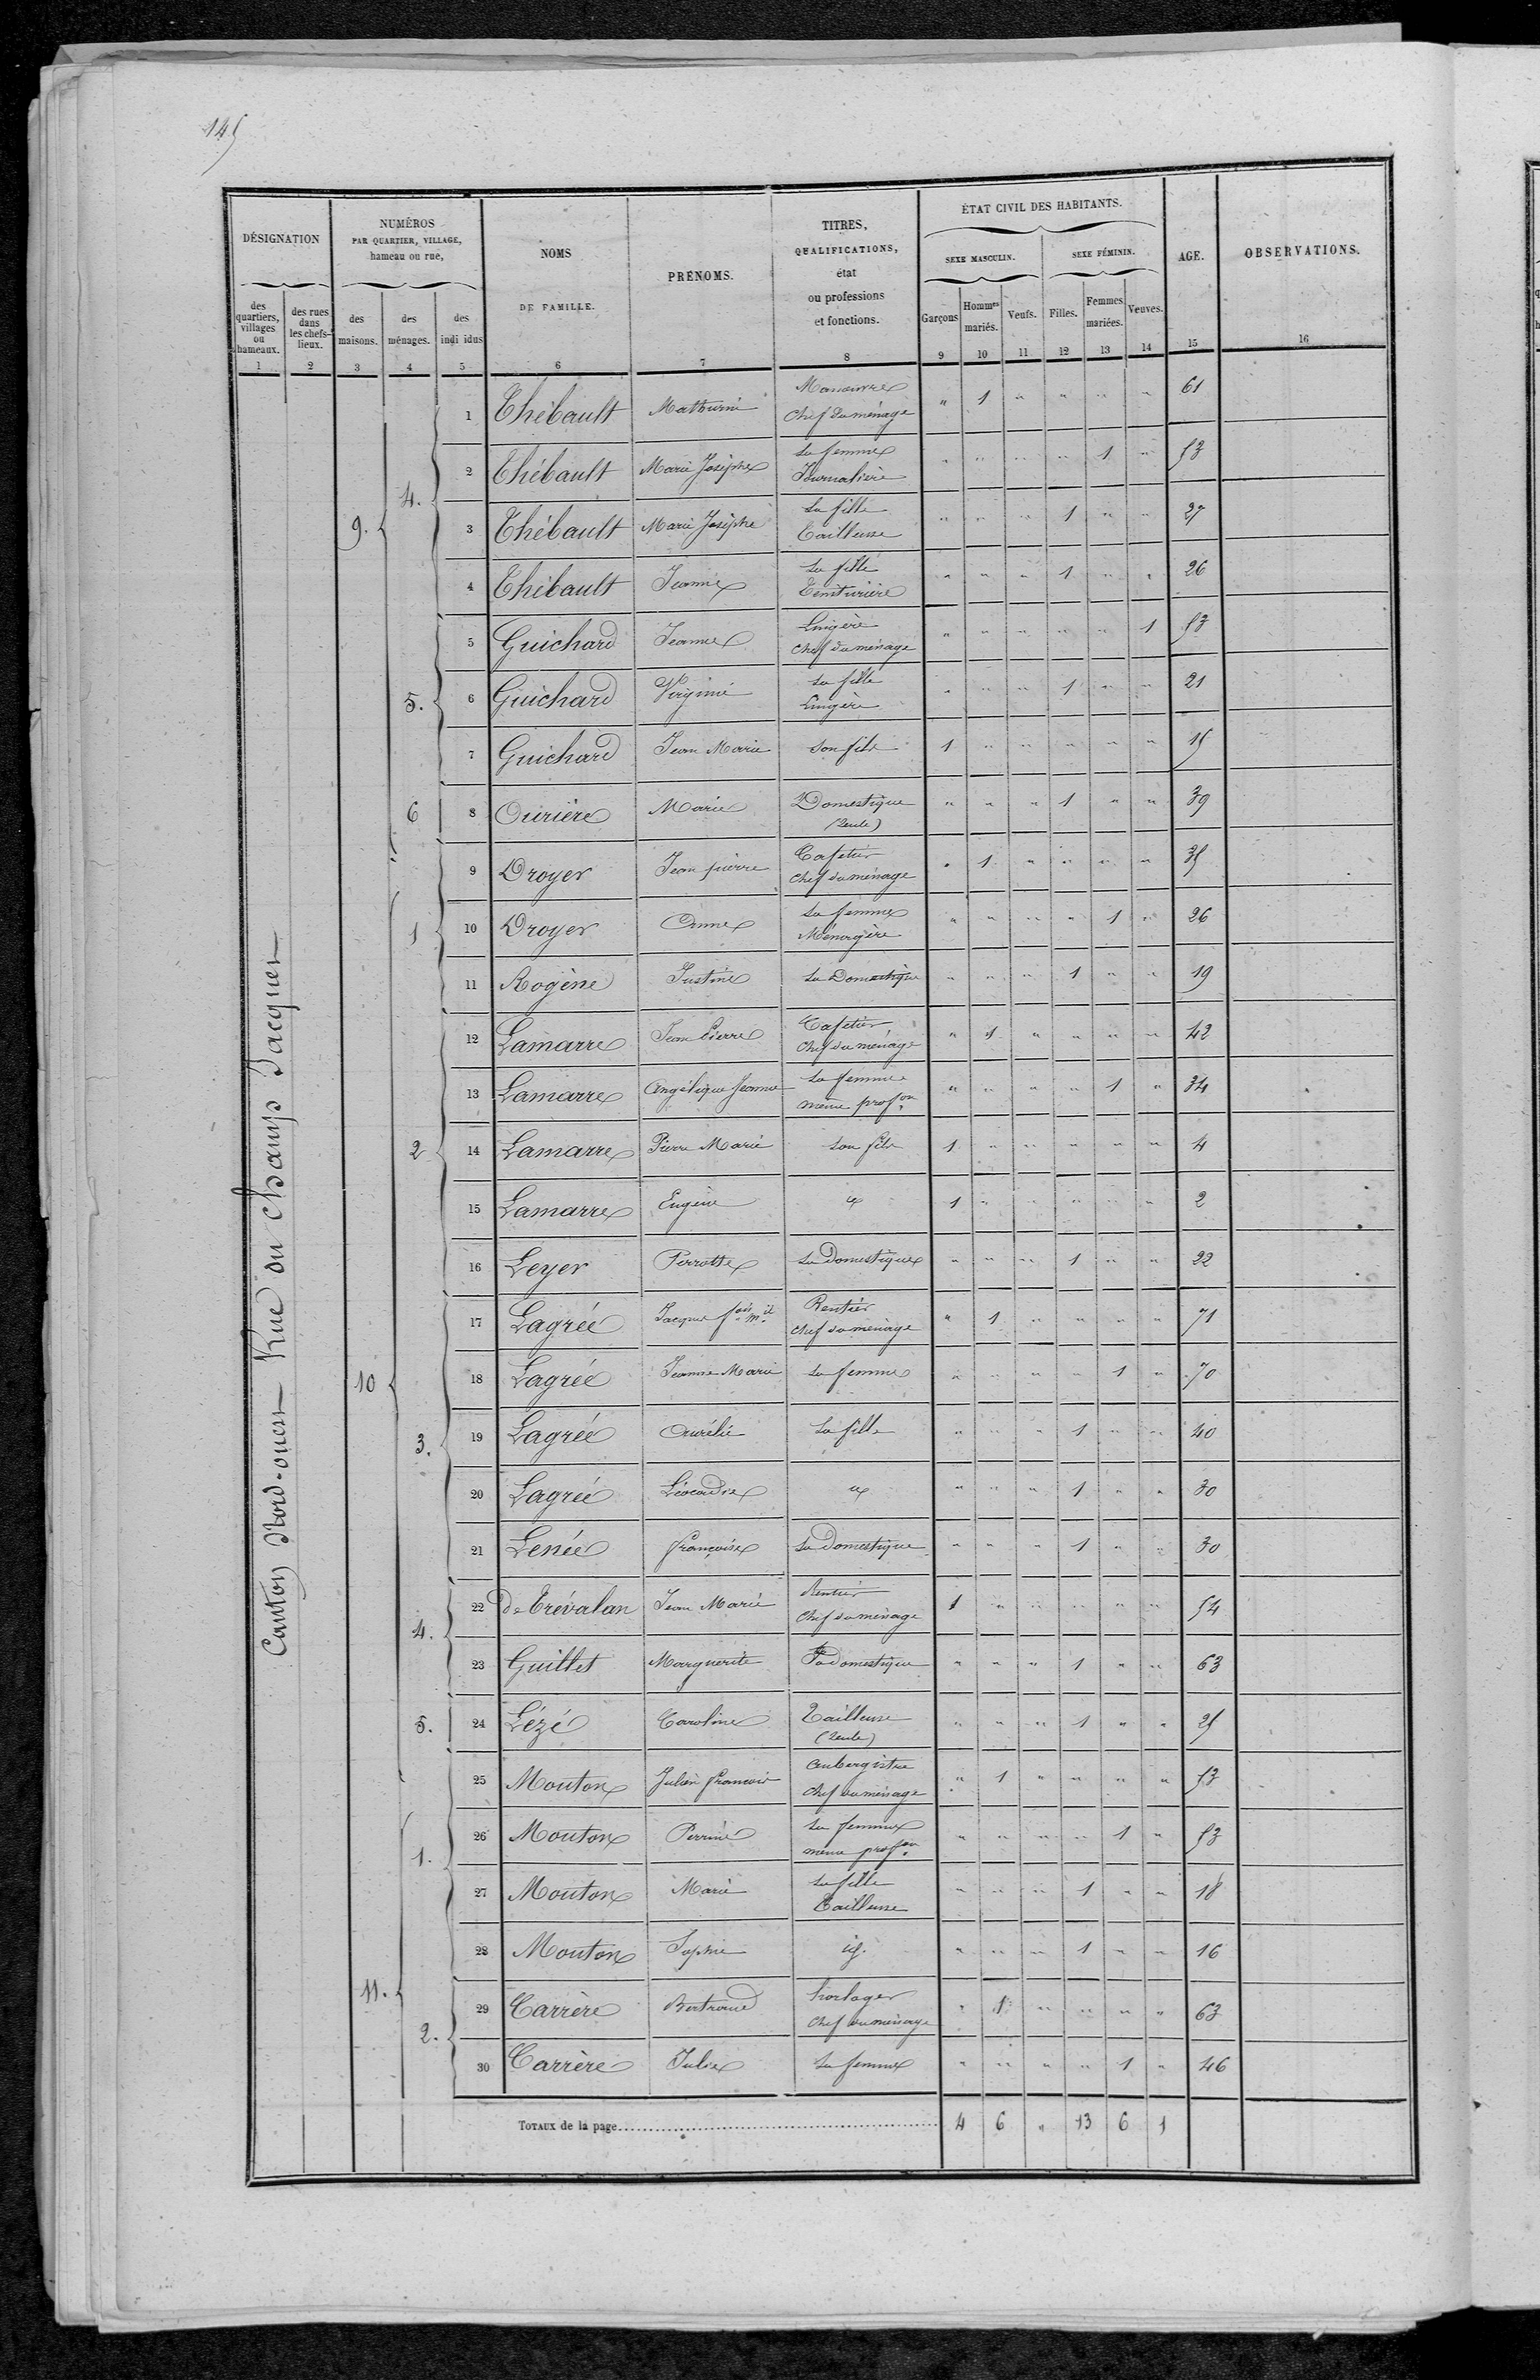 145
DÉSIGNATION
NUMÉROS
PAR QUARTIER, VILLAGE,
hameau ou rue,
NOMS
DE FAMILLE.
PRÉNOMS.
TITRES,
QUALIFICATIONS,
état
ou professions
et fonctions.
ÉTAT CIVIL DES HABITANTS.
SEXE MASCULIN.
SEXE FÉMININ.
AGE.
OBSERVATIONS.
des quartiers, villages ou hameaux.
des rues dans les chefs-lieux.
des maisons.
des ménages.
des indi idus
Garçons
Hommes mariés.
Veufs.
Filles.
Femmes mariées.
Veuves.
1 2 3 4 5 6 7 8 9 10 11 12 13 14 15 16
Canton Nord-ouest — Rue du Champ Jacquet
9. 4. 1 Thébault Mathurin Manœuvre Chef du ménage " 1 " " " " 61
2 Thébault Marie Josèphe Sa femme Journalière " " " " 1 " 53
3 Thébault Marie Josèphe Sa fille Tailleuse " " " 1 " " 27
4 Thébault Jeanne Sa fille Teinturière " " " 1 " " 26
5. 5 Guichard Jeanne Lingère Chef du ménage " " " " " 1 53
6 Guichard Virginie Sa fille Lingère " " " 1 " " 21
7 Guichard Jean Marie Son fils 1 " " " " " 15
6 8 Ourière Marie Domestique (Seule) " " " 1 " " 39
10 1 9 Droyer Jean pierre Cafetier Chef du ménage " 1 " " " " 35
10 Droyer Anne Sa femme Ménagère " " " " 1 " 26
11 Rogène Justine Sa Domestique " " " 1 " " 19
2 12 Lamarre Jean Pierre Cafetier Chef du ménage " 1 " " " " 42
13 Lamarre Angélique Jeanne Sa femme même prof.on " " " " 1 " 34
14 Lamarre Pierre Marie Son fils 1 " " " " " 4
15 Lamarre Eugène " 1 " " " " " 2
16 Leyer Perrotte Sa Domestique " " " 1 " " 22
3. 17 Lagrée Jacques f.ois m.el Rentier Chef du ménage " 1 " " " " 71
18 Lagrée Jeanne Marie Sa femme " " " " 1 " 70
19 Lagrée Aurélie Sa fille " " " 1 " " 40
20 Lagrée Léocadie " " " " 1 " " 30
21 Lenée Françoise Sa Domestique " " " 1 " " 30
4. 22 de Trévalan Jean Marie Rentier Chef du ménage 1 " " " " " 54
23 Guillet Marguerite Sa domestique " " " 1 " " 63
5. 24 Lézé Caroline Tailleuse (Seule) " " " 1 " " 25
11. 1. 25 Mouton Julien François Aubergiste Chef du ménage " 1 " " " " 53
26 Mouton Perrine Sa femme même prof.on " " " " 1 " 53
27 Mouton Marie Sa fille Tailleuse " " " 1 " " 18
28 Mouton Sophie id. " " " 1 " " 16
2. 29 Carrère Bertrand horloger Chef du ménage " 1 " " " " 63
30 Carrère Julie Sa femme " " " " 1 " 46
TOTAUX de la page 4 6 " 13 6 1